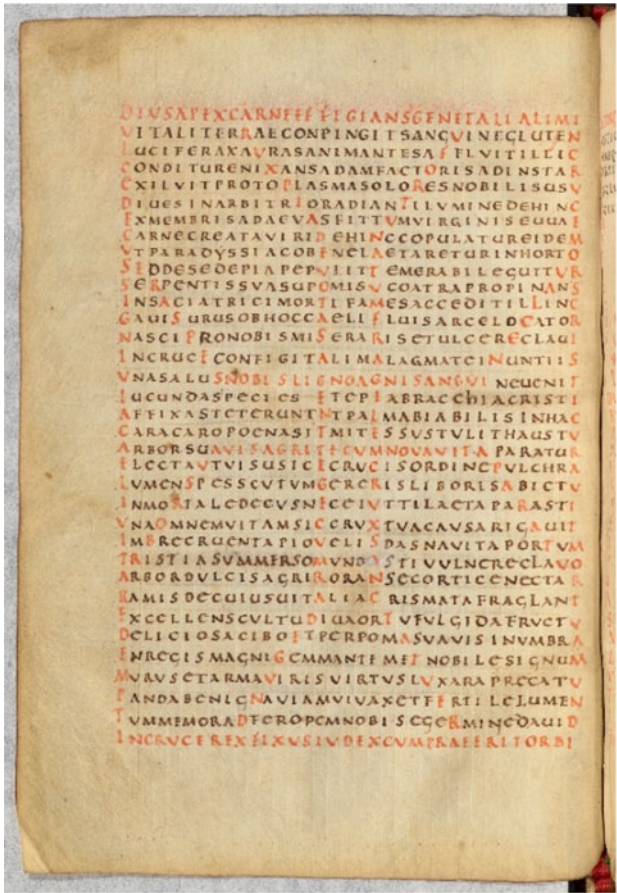 DIUSAPEXCARNEEFFIGIANSGENETALIALIMI
VITALITERRAECONPINGITSANGUINEGLUTEN
LUCIFERAXAURASANIMANTESAFFLUITILLIC
CONDITURENIXANSADAMFACTORISADINSTAR
EXILUITPROTOPLASMASOLORESNOBILISUSU
DIUESINARBITRIORADIANTILUMINEDEHINC
EXMEMBRISADAEVASFITTUMVIRGINISEUUAE
CARNECREATAVIRIDEHINCCOPULATUREIDEM
VTPARADYSSIACOBENELAETARETURINHORTO
SEDDESEDEPIAPEPULITTEMERABILEGUTTUR
SERPENTISSVASUPOMISVCOATRAPROPINANS
INSACIATRICIMORTIFAMESACCEDITILLINC
GAUISURUSOBHOCCAELIFLUISARCELOCATOR
NASCIPRONOBISMISERARISETULCERECLAUI
INCRUCECONFIGITALIMALAGMATEINUNTIIS
VNASALUSNOBISLIGNOAGNISANGVINEUENIT
IUCUNDASPECIESETEPIABRACCHIACRISTI
AFFIXASTETERUNTNTPALMABIABILISINHAC
CARACAROPOENASITMITESSUSTULITHAUSTV
ARBORSUAVISAGRITECVMNOVAVITAPARATUR
ELECTAVTVISUSICECRUCISORDINEPULCHRA
LVMENSPESSCVTVMGERERISLIBORISABICTV
INMORTALEDECVSNECEIVTTILAETAPARASTI
VNAOMNEMVITAMSICCRVXTVACAVSARIGAUIT
IMBRECRUENTAPIOVELISDASNAVITAPORTVM
TRISTIASVMMERSOMVNDASTIVVLNERECLAVO
ARBORDVLCISAGRIRORANSECORTICENECTAR
RAMISDECUIUSUITALIACRISMATAFRAGLANT
EXCELLENSCVLTUDIUAORTVFVLGIDAFRVCTV
DELICIOSACIBOETPERPOMASVAVISINVMBRA
ENREGISMAGNIGEMMANTEMETNOBILESIGNUM
MVRVSETARMAVIRISVIRTVSLVXARAPRECATV
PANDABENIGNAVIAMVIVAXETFERTILELUMEN
TVMMEMORADFEROPEMNOBISEGERMINEDAUID
INCRVCEREXFIXUSIVDEXCVMPRAEERITORBI